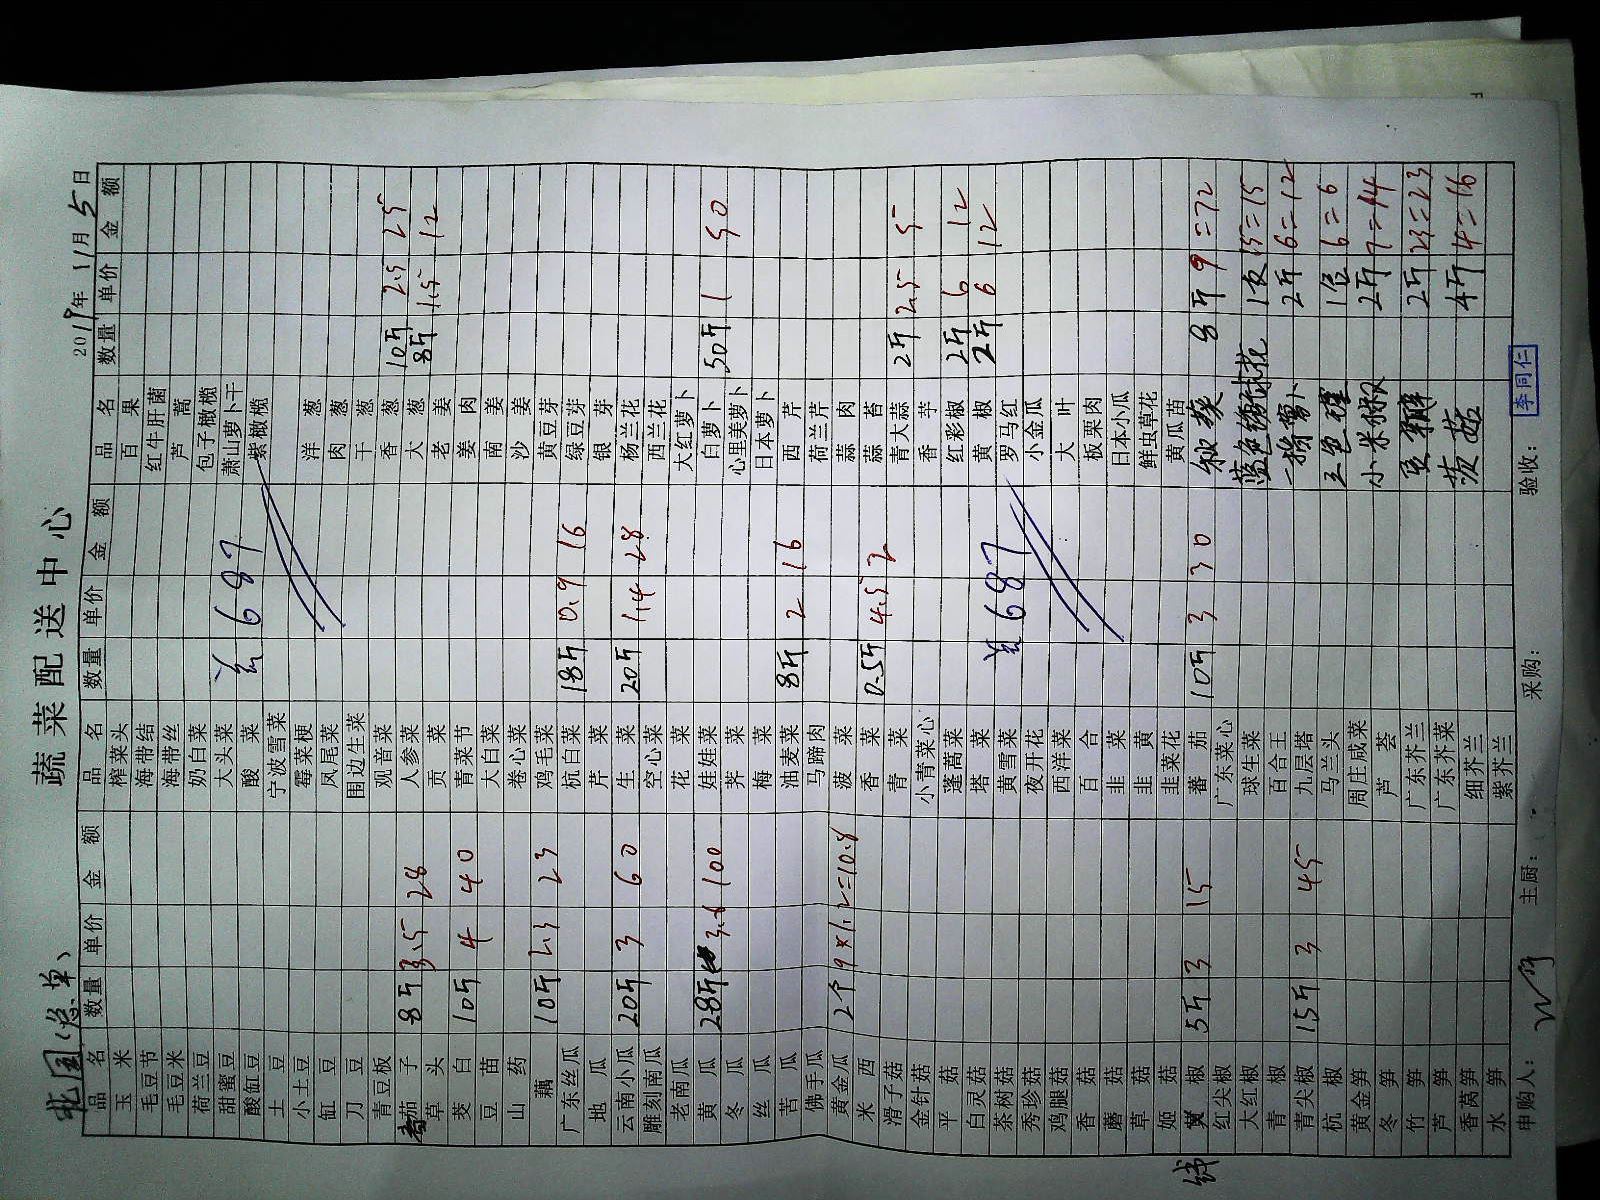 蔬菜配送中心
花园(总单)
2019年11月5日
品名 数量 单价 金额 品名 数量 单价 金额 品名 数量 单价 金额
玉米 榨菜头 百果
毛豆节 海带结 红牛肝菌
毛豆米 海带丝 芦蒿
荷兰豆 奶白菜 包子橄榄
甜蜜豆 大头菜 萧山萝卜干
酸豇豆 酸菜 紫橄榄
¥687
土豆 宁波雪菜
小土豆 霉菜梗 洋葱
豇豆 凤尾菜 肉葱
刀豆 围边生菜 干葱
青豆板 观音菜 香葱 10斤 2.5 25
茄子 8斤 3.5 28 人参菜 大葱 8斤 1.5 12
草头 贡菜 老姜
茭白 10斤 4 40 青菜节 姜肉
豆苗 大白菜 南姜
山药 卷心菜 沙姜
藕 10斤 2.3 23 鸡毛菜 黄豆芽
广东丝瓜 杭白菜 18斤 0.9 16 绿豆芽
地瓜 芹菜 银芽
云南小瓜 20斤 3 60 生菜 20斤 1.4 28 杨兰花
雕刻南瓜 空心菜 西兰花
老南瓜 花菜 大红萝卜
黄瓜 28斤 3.6 100 娃娃菜 白萝卜 50斤 1 50
冬瓜 荠菜 心里美萝卜
丝瓜 梅菜 日本萝卜
苦瓜 油麦菜 8斤 2 16 西芹
佛手瓜 马蹄肉 荷兰芹
黄金瓜 2个 9×1.2=10.8 菠菜 蒜肉
米西 香菜 0.5斤 4.5 2 蒜苔
滑子菇 青菜 青大蒜 2斤 2.5 5
金针菇 小青菜心 香芋
平菇 蓬蒿菜 红彩椒 2斤 6 12
白灵菇 塔菜 黄椒 2斤 6 12
茶树菇 黄雪菜 罗马红
¥687
秀珍菇 夜开花 小金瓜
鸡腿菇 西洋菜 大叶
香菇 百合 板栗肉
蘑菇 韭菜 日本小瓜
草菇 韭黄 鲜虫草花
姬菇 韭菜花 黄瓜苗
线椒 5斤 3 15 蕃茄 10斤 3 30 秋葵 8斤 9 =72
红尖椒 广东菜心
大红椒 球生菜 蓝色绣球花 1支 15=15
青椒 百合王 一擀萝卜 2斤 6=12
青尖椒 15斤 3 45 九层塔
杭椒 马兰头 1包 6=6
黄金笋 周庄咸菜 小米椒 2斤 7=14
冬笋 芦荟
竹笋 广东芥兰 豆瓣 2斤 23=23
芦笋 广东芥菜
香莴笋 细芥兰 茨菇 4斤 4=16
水笋 紫芥兰
申购人: 主厨: 采购: 验收: 李同仁